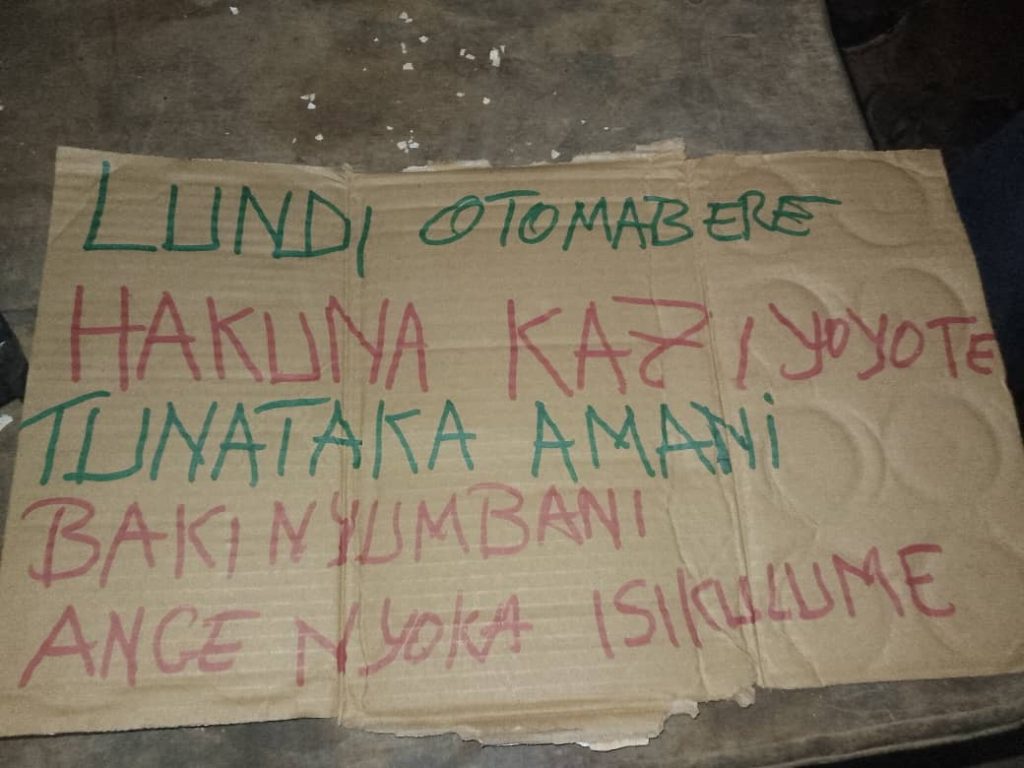 LUNDI OTOMABERE
HAKUNA KAZI YOYOTE
TUNATAKA AMANI
BAKI NYUMBANI
ANGE NYOKA ISIKULUME